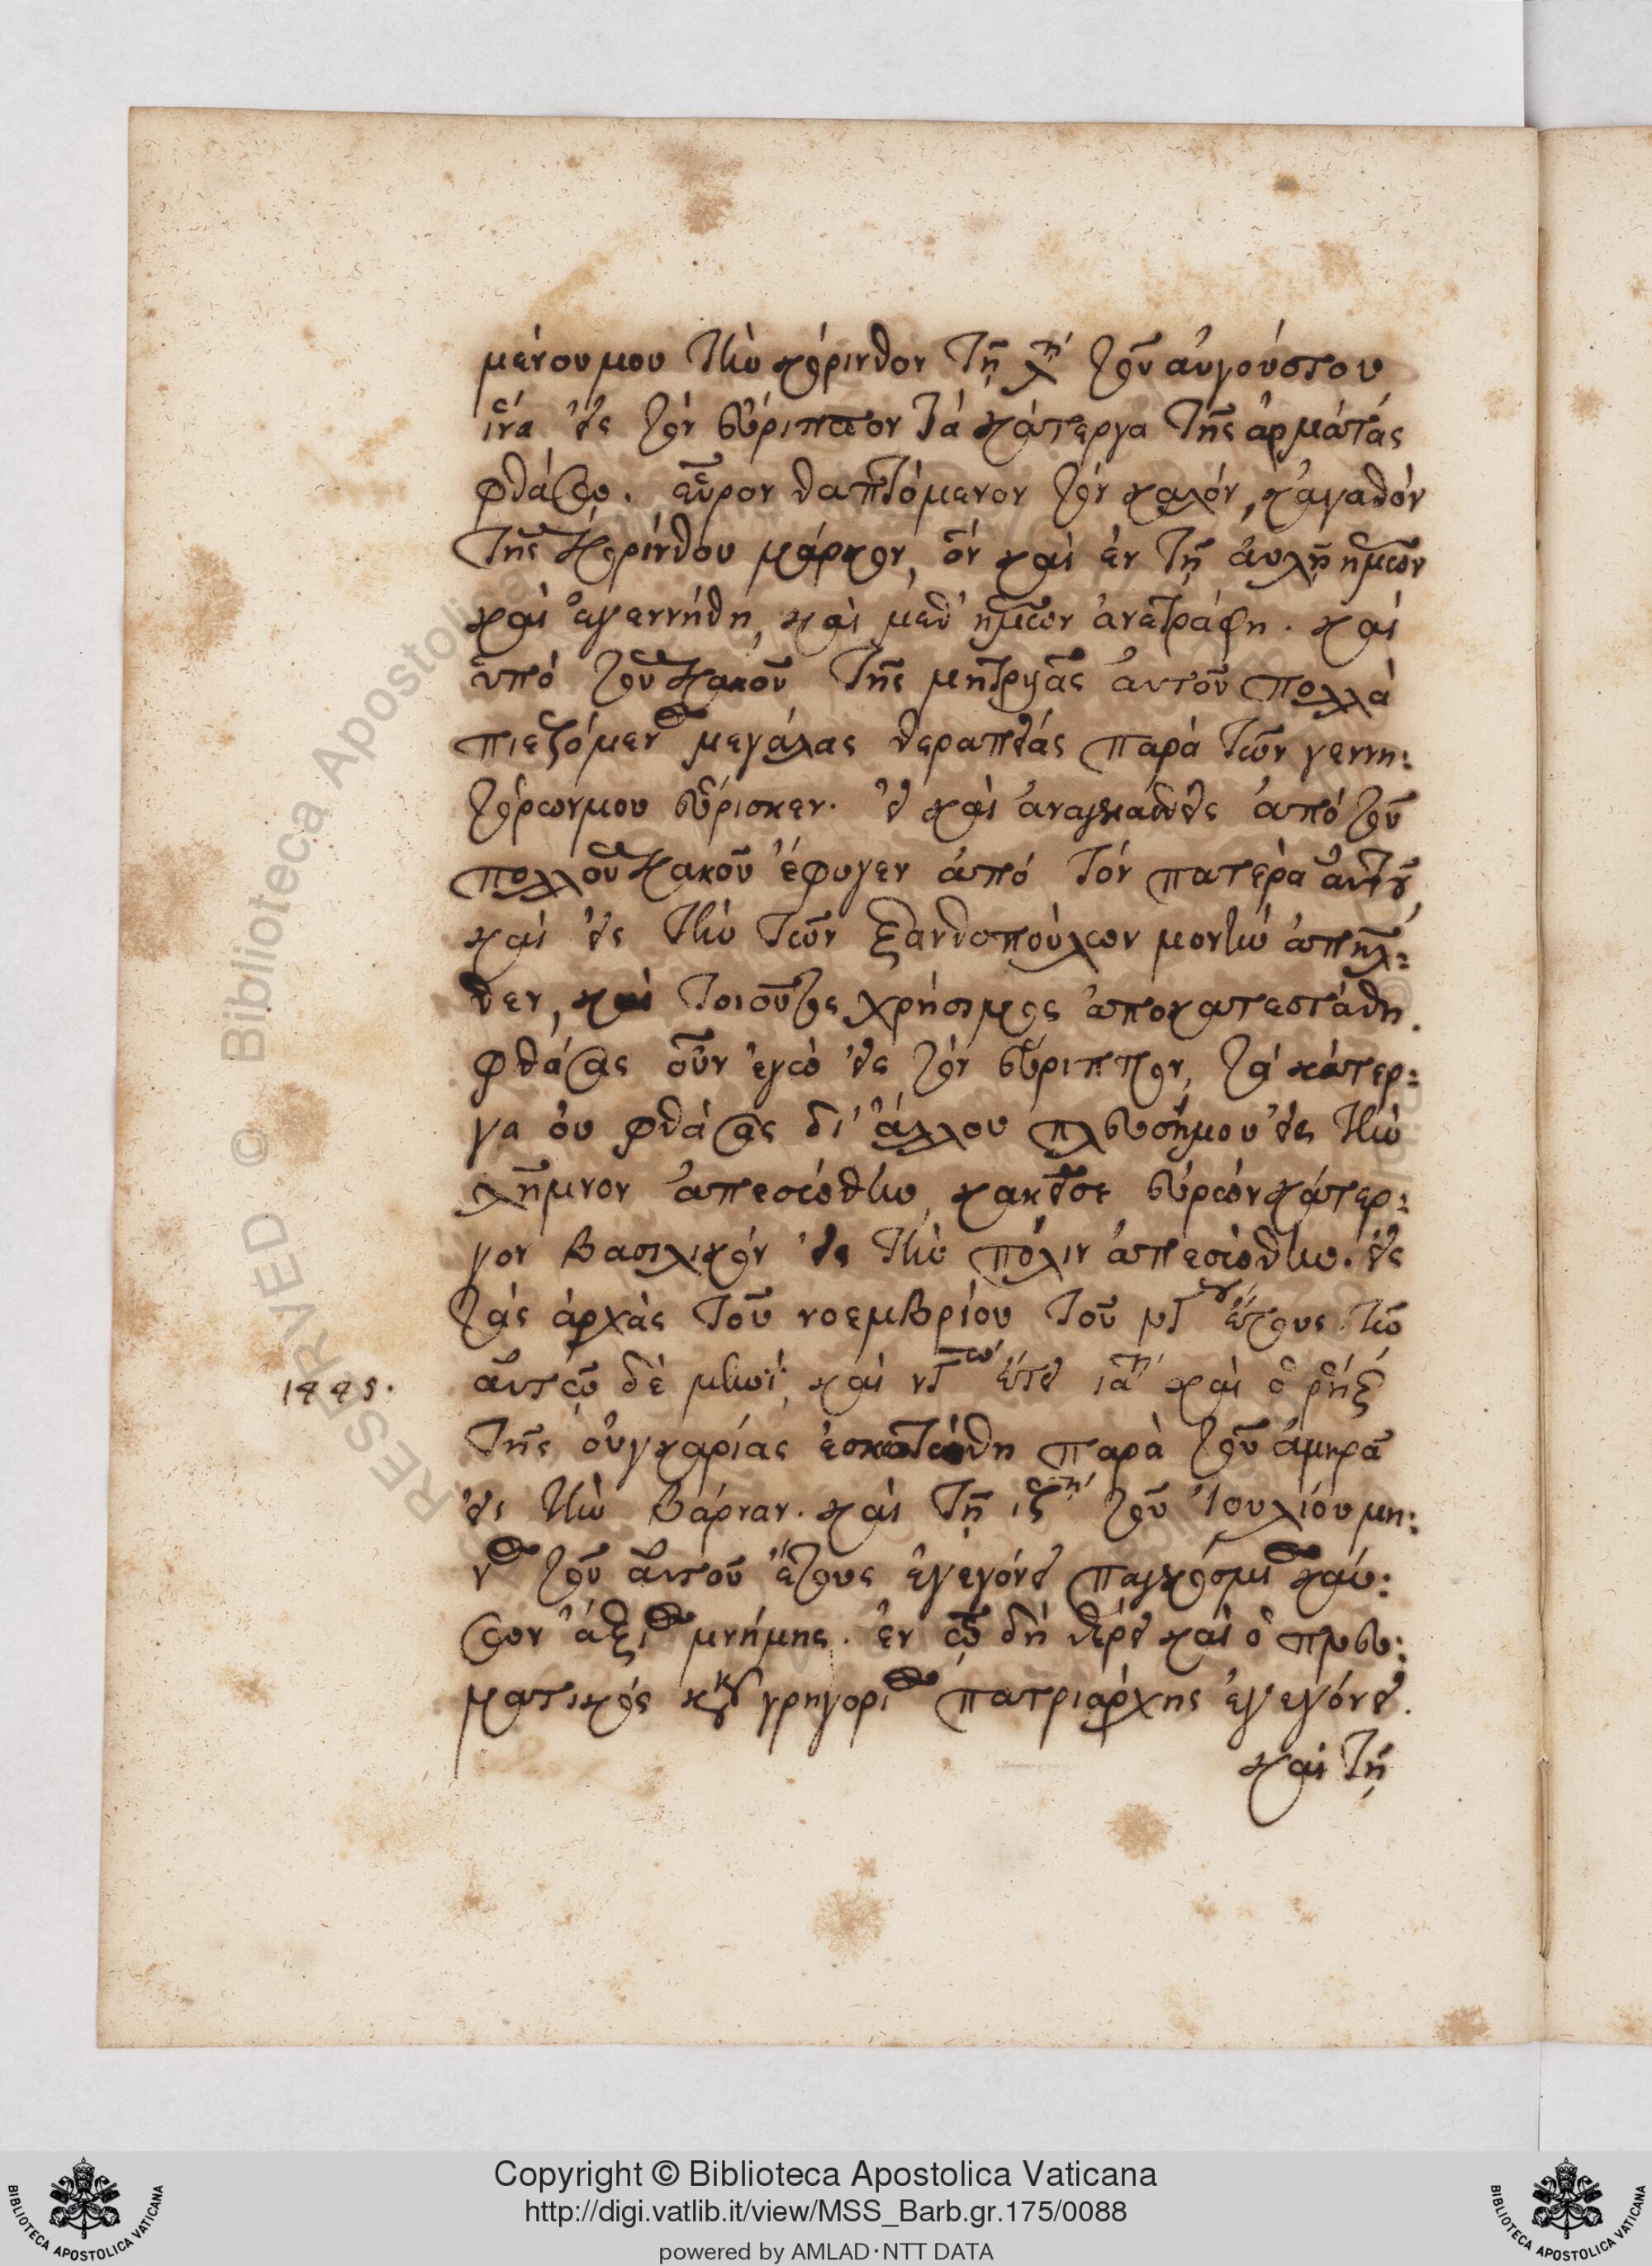 μένου μου τὴν κόρινθον τῇ λῃ τοῦ αὐγούστου
ἵνα εἰς τὸν εὔριπον τὰ κάτεργα τῆς ἀρμάτας
φθάσω. εὗρον θαπτόμενον τὸν καλόν, κἀγαθόν
τῆς κορίνθου μάρκον, ὃν καὶ ἐν τῇ αὐλῇ ἡμῶν
καὶ ἐγεννήθη, καὶ μεθ' ἡμῶν ἀνετράφη. καὶ
ὑπὸ τοῦ κακοῦ τῆς μητρυιᾶς αὐτοῦ πολλὰ
πιεζόμενος μεγάλας θεραπείας παρὰ τῶν γεννη:
τόρων μου εὕρισκεν. εἰ καὶ ἀναγκασθεὶς ἀπὸ τοῦ
πολλοῦ κακοῦ ἔφυγεν ἀπὸ τὸν πατέρα αὐτοῦ,
καὶ εἰς τὴν τῶν ξανθοπούλων μονὴν ἀπῆλ:
θεν, καὶ τοιοῦτος χρήσιμος ἀποκατεστάθη.
φθάσας οὖν ἐγὼ εἰς τὸν εὔριππον, τὰ κάτερ:
γα οὐ φθάσας δι' ἄλλου πλευσήμου εἰς τὴν
λῆμνον ἀπεσώθην, κακεῖσε εὑρὼν κάτερ:
γον βασιλικὸν εἰς τὴν πόλιν ἀπεσώθην. εἰς
τὰς ἀρχὰς τοῦ νοεμβρίου τοῦ νγου ἔτους. τῷ
αὐτῷ δὲ μηνί, καὶ νγω ἔτει ιαῃ καὶ ὁ ρὴξ
τῆς οὐγκαρίας ἐσκοτώθη παρὰ τοῦ ἀμηρᾶ
εἰς τὴν βάρναν. καὶ τῇ ιζῃ τοῦ ἰουλίου μη:
νὸς τοῦ αὐτοῦ ἔτους ἐγεγόνει παγκόσμιος καύ:
σων ἄξιος μνήμης. ἐν ᾧ δὴ θέρει καὶ ὁ πνευ:
ματικὸς κὺρ γρηγόριος πατριάρχης ἐγεγόνει.
καὶ τῇ
1445.
Copyright © Biblioteca Apostolica Vaticana
http://digi.vatlib.it/view/MSS_Barb.gr.175/0088
powered by AMLAD·NTT DATA